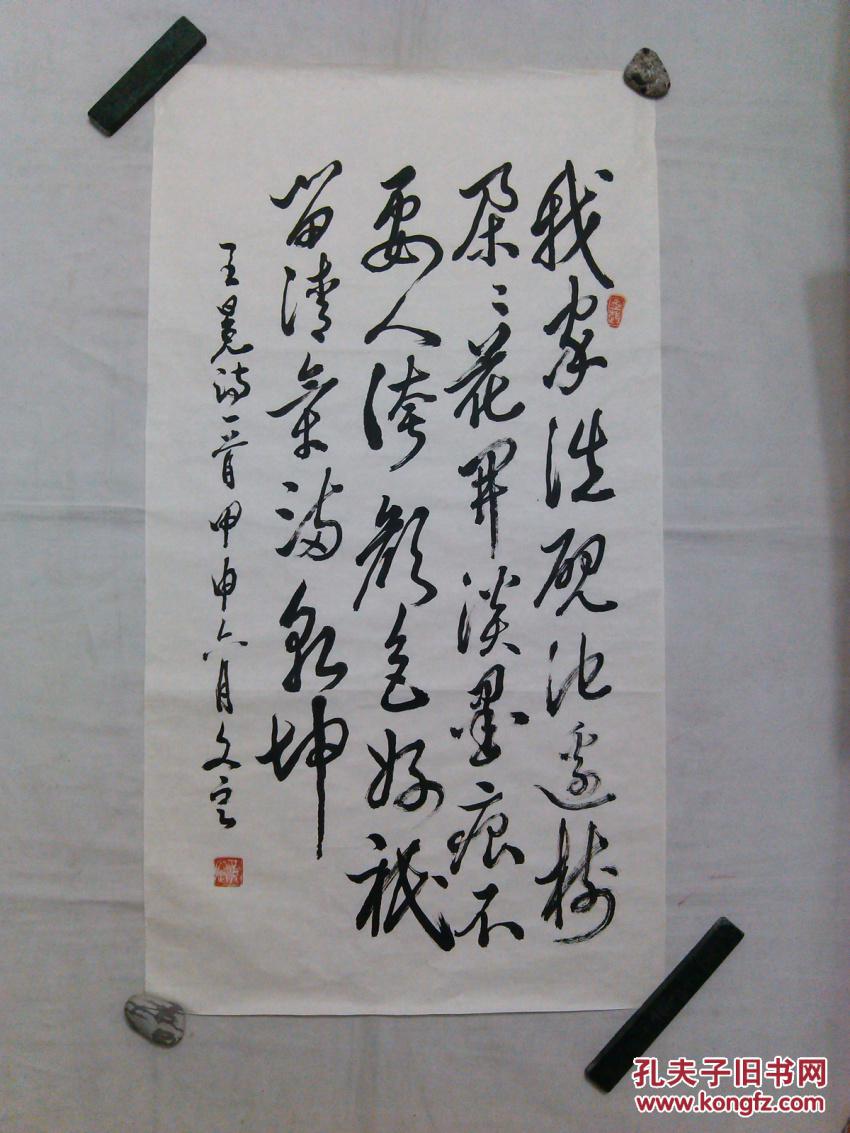 我家洗砚池邊树
朵〻花開淡墨痕不
要人誇顔色好祇
留清氣滿乾坤
王冕诗一首甲申六月文宝
孔夫子旧书网
www.kongfz.com